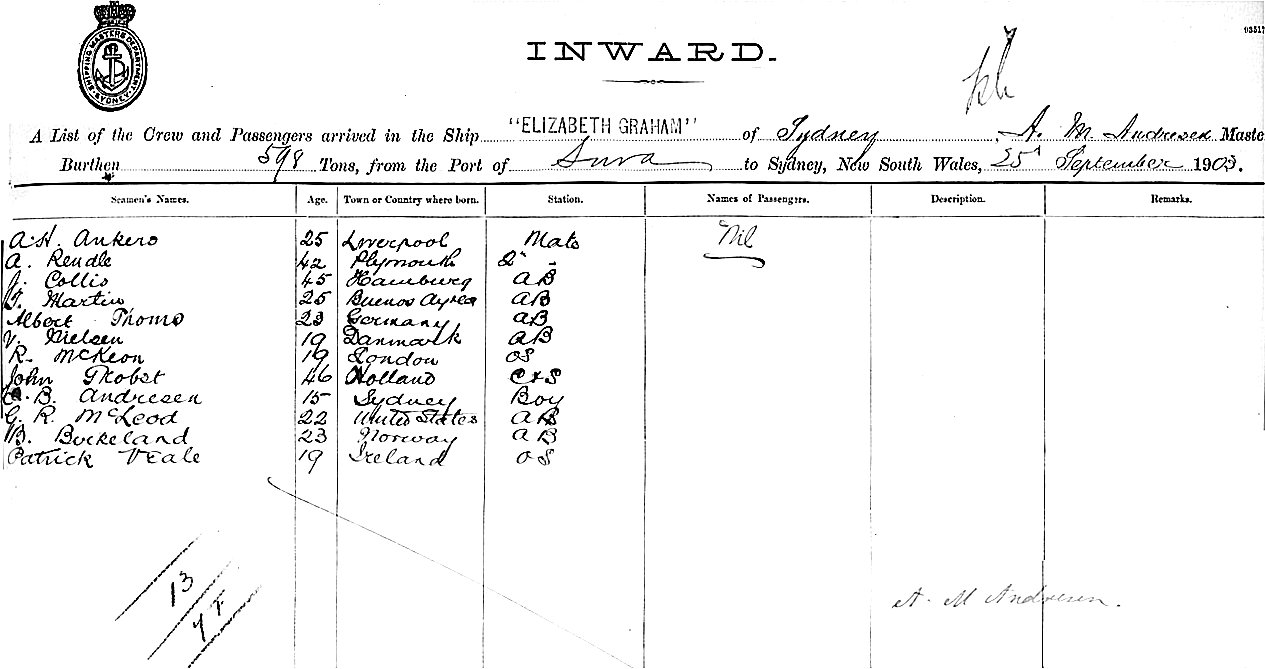 SHIPPING MASTERS DEPARTMENT SYDNEY
93517
INWARD.
A List of the Crew and Passengers arrived in the Ship "ELIZABETH GRAHAM" of Sydney, A. M. Andresen Maste
Burthen 598 Tons, from the Port of Suva to Sydney, New South Wales, 25 September 1903.
Seamen's Names. Age. Town or Country where born. Station. Names of Passengers. Description. Remarks.
A. H. Ankers 25 Liverpool Mate Nil
A. Rendle 42 Plymouth 2" -
J. Collis 45 Hamburg AB
Martin 25 Buenos Ayres AB
Albert Thoms 23 Germany AB
V. Nielsen 19 Danmark AB
R. McKeon 19 London OS
John Probst 46 Holland C&S
B. Andresen 15 Sydney Boy
G. R. McLeod 22 United States AB
B. Birkeland 23 Norway AB
Patrick Veale 19 Ireland OS
13
7 F
A. M Andresen.